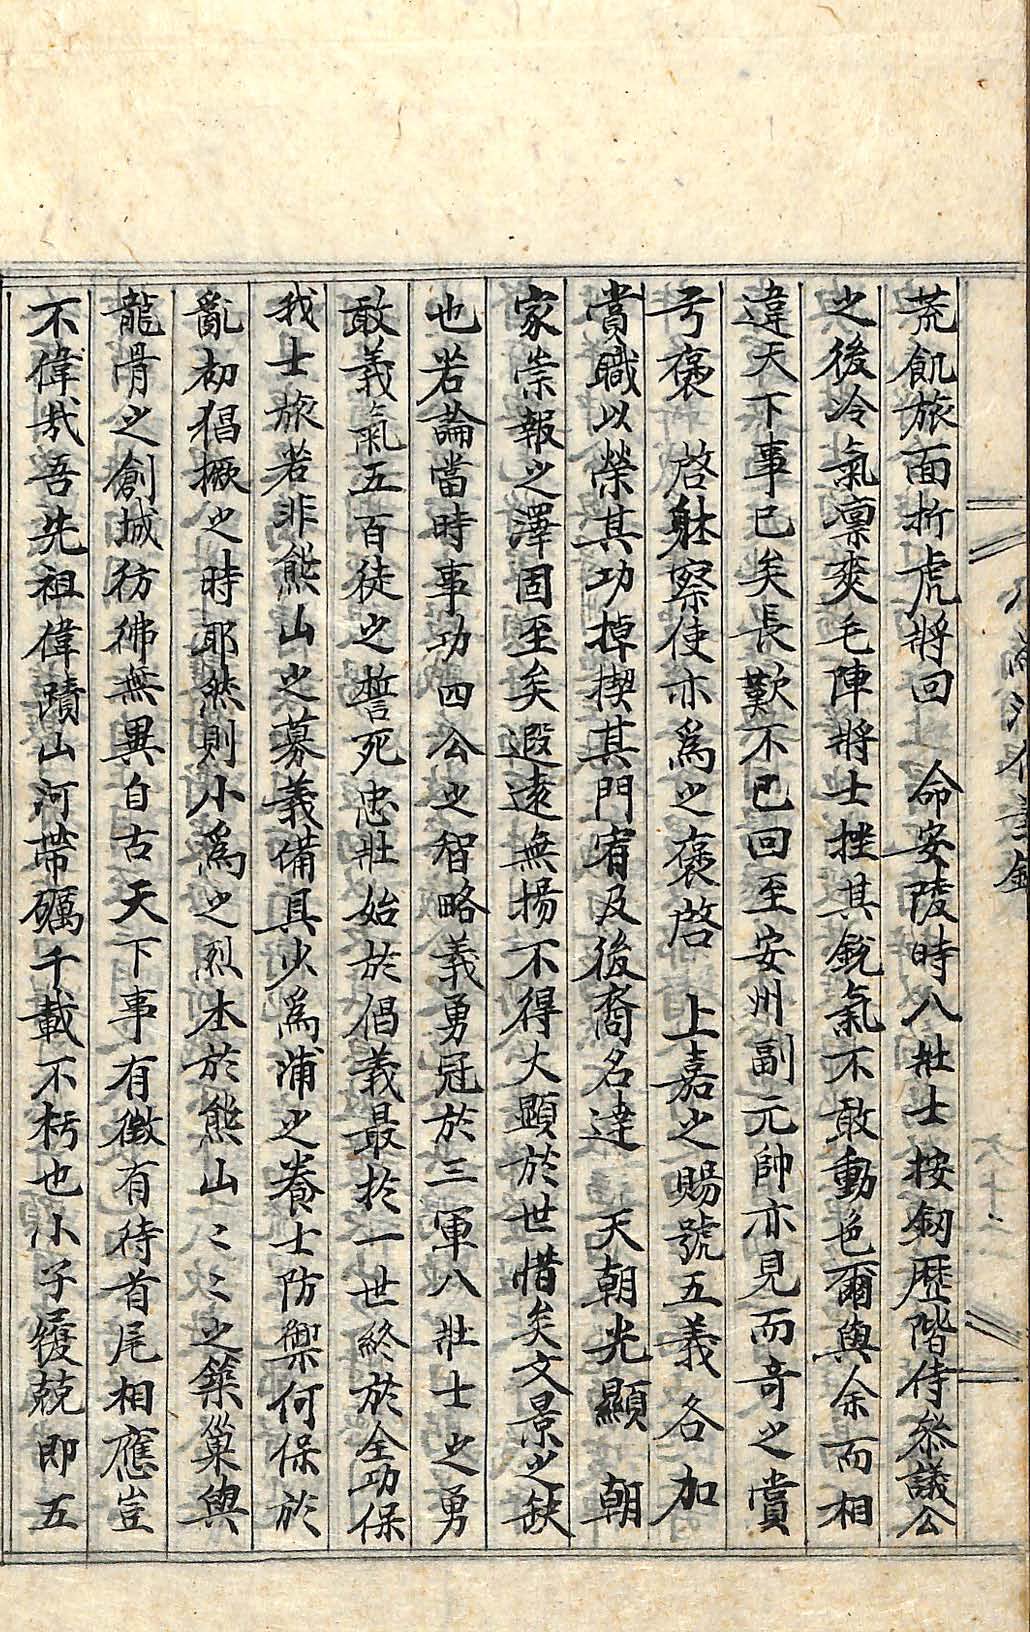 荒飢旅面折虎將回　命安陵時八壯士按釰歷階侍叅議公
之後冷氣凛奭毛陣將士挫其銳氣不敢動色爾與余而相
違天下事已矣長歎不已回至安州副元帥亦見而奇之賞
号褒　啓躰察使亦爲之褒啓　上嘉之賜號五義各加
賞職以榮其功掉楔其門宥及後裔名達　天朝光顯　朝
家崇報之澤固至矣遐遠無揚不得大顯於世惜矣文景之缺
也若論當時事功四公之智略義勇冠於三軍八壯士之勇
敢義氣五百徒之誓死忠壯始於倡義最於一世終於全功保
我士旅若非熊山之募義備具少爲浦之養士防禦何保於
亂初猖撅之時耶然則小爲之烈本於熊山〻〻之築巢與
龍骨之創城彷彿無異自古天下事有徵有待首尾相應豈
不偉哉吾先祖偉蹟山河帶礪千載不朽也小子後兢即五